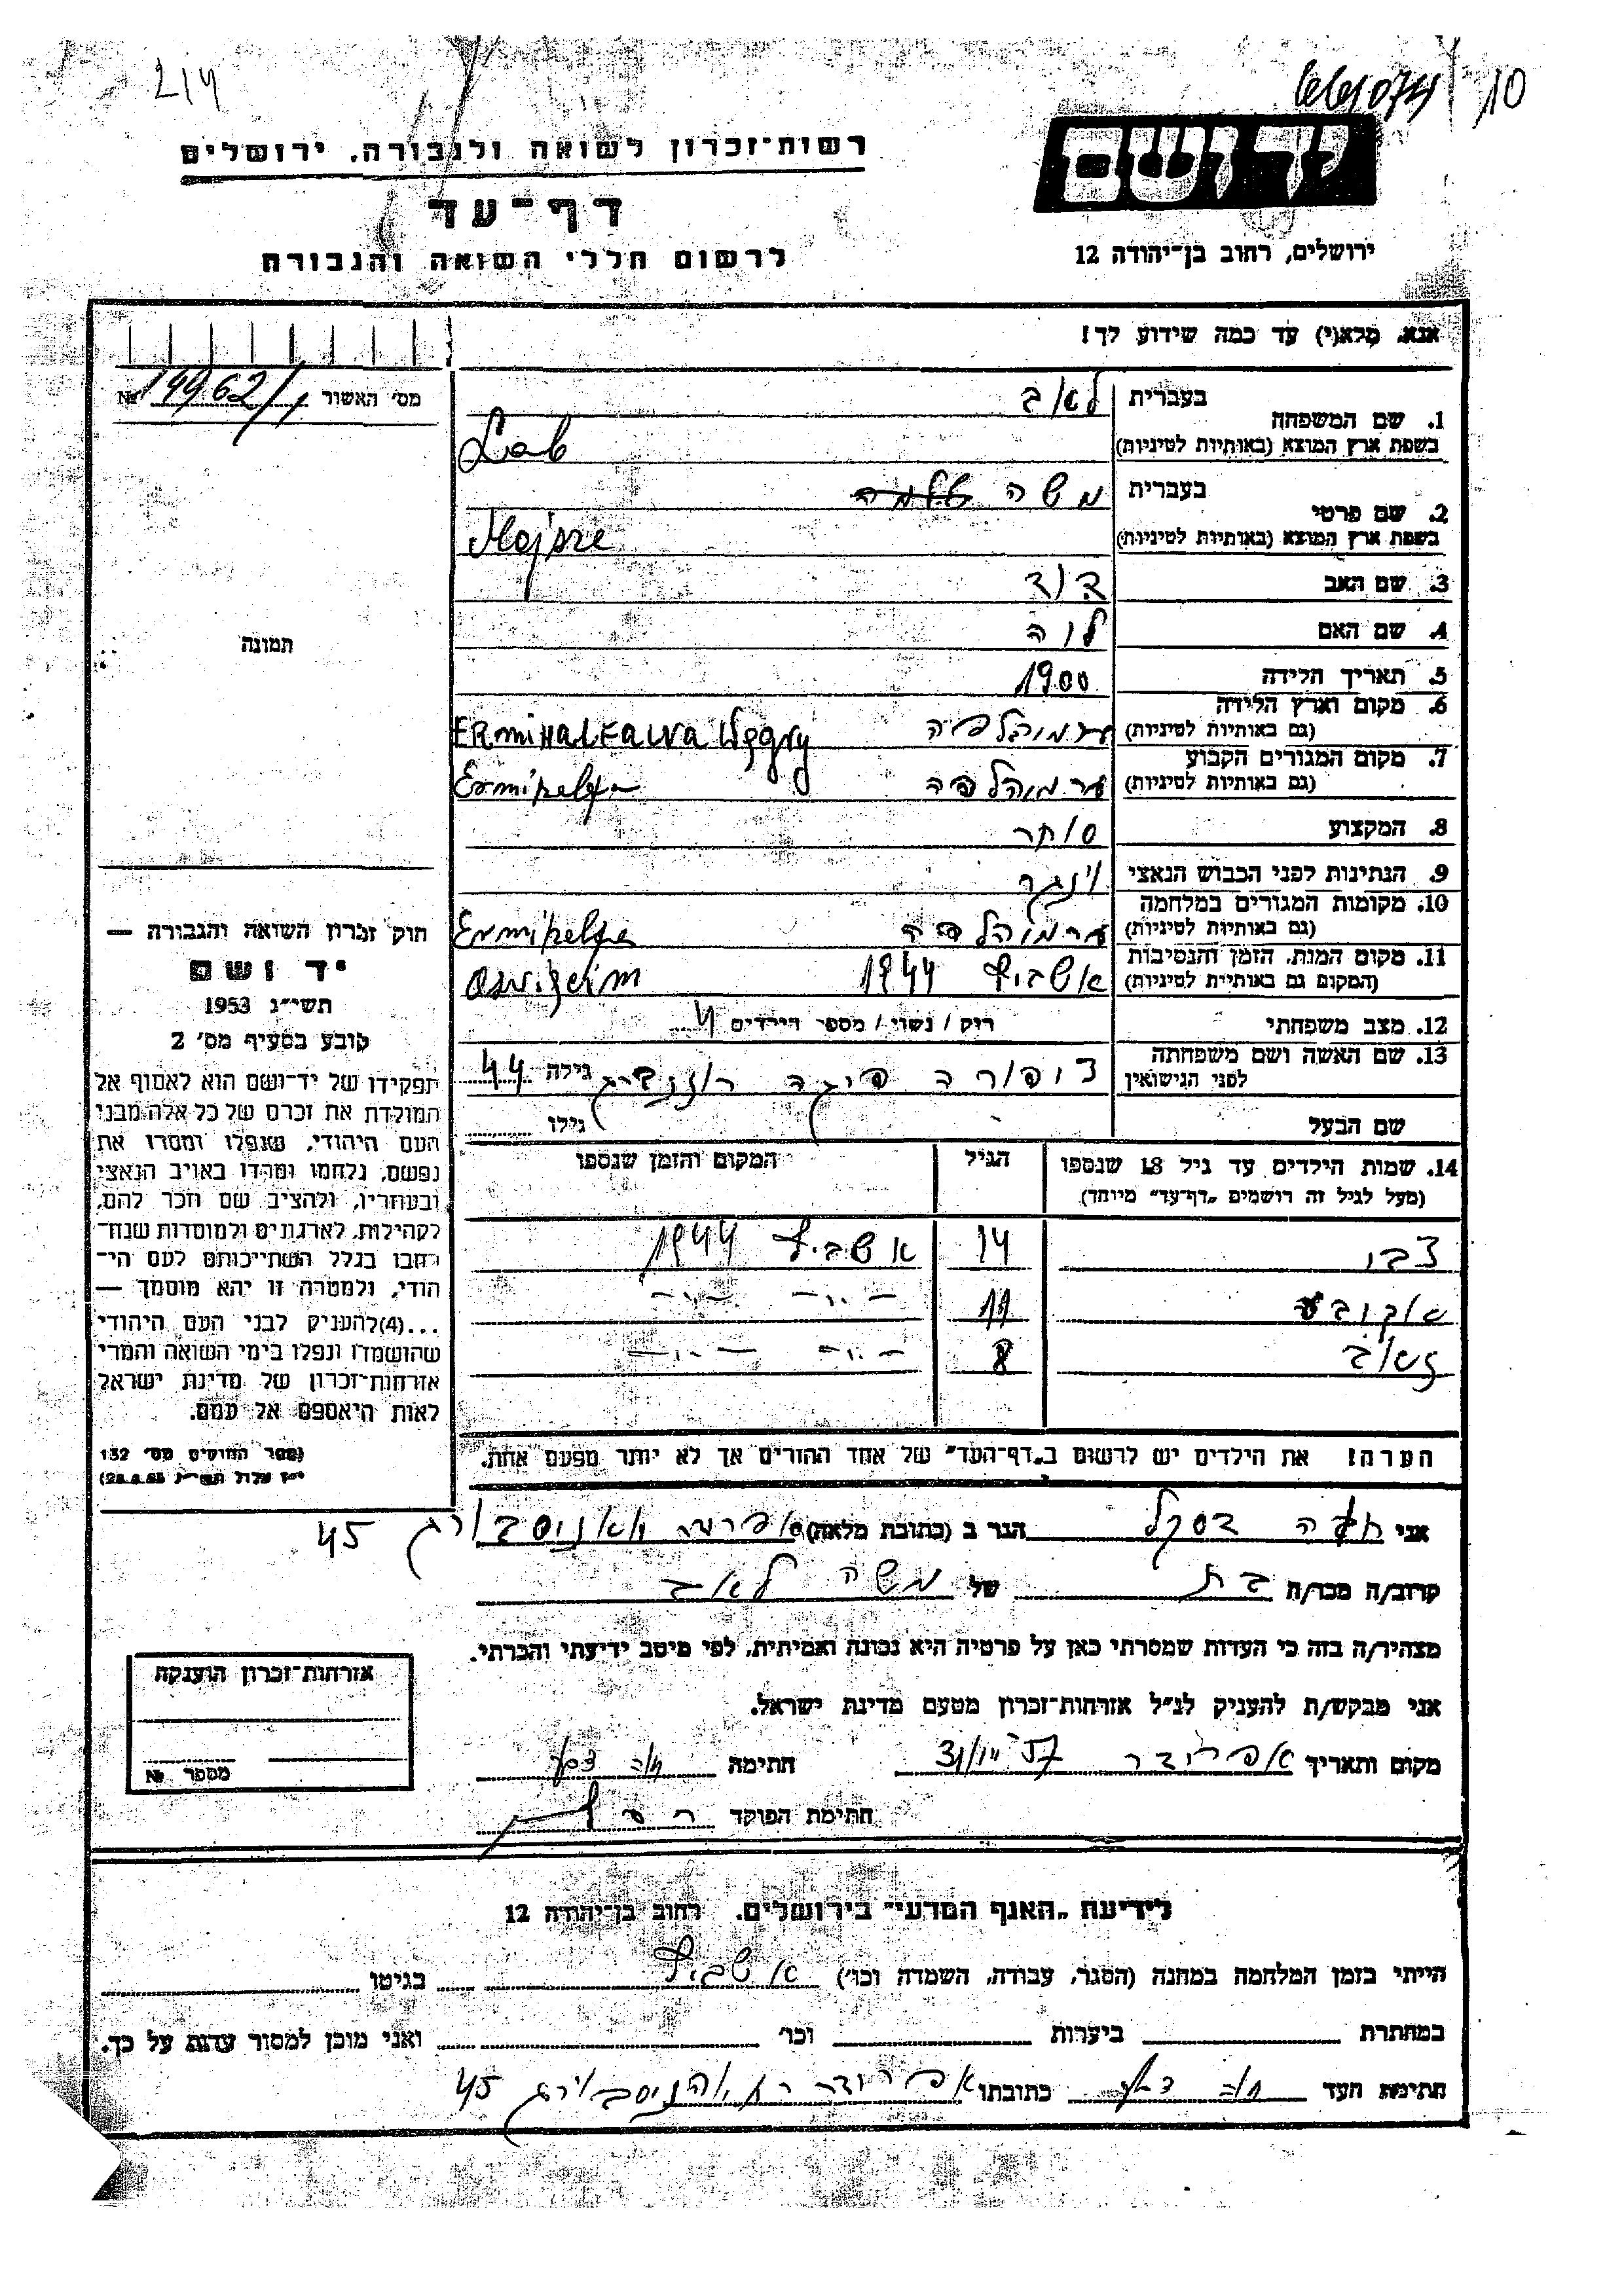 214
661074 10
רשות־זכרון לשואה ולגבורה, ירושלים
יד ושם
דף־עד
ירושלים, רחוב בן־יהודה 12
לרשום חללי השואה והגבורה
אנא, מלא(י) עד כמה שידוע לך!
מס׳ האשור 19962/1 №
1. שם המשפחה
בעברית לאב
בשפת ארץ המוצא (באותיות לטיניות) Lab
2. שם פרטי
בעברית משה
בשפת ארץ המוצא (באותיות לטיניות) Mojsze
3. שם האב דוד
4. שם האם לוה
5. תאריך הלידה 1900
6. מקום וארץ הלידה ערמיהלפלה
(גם באותיות לטיניות) ERmiHaLFaLVa Węgry
7. מקום המגורים הקבוע
(גם באותיות לטיניות) ערמיהלפה Ermihelfa
8. המקצוע סוחר
9. הנתינות לפני הכבוש הנאצי
10. מקומות המגורים במלחמה
(גם באותיות לטיניות) ערמיהלפה Ermihelfa
11. מקום המות, הזמן והנסיבות
(המקום גם באותיות לטיניות) אשביץ 1944 Oswizeim
12. מצב משפחתי רווק / נשוי / מספר הילדים 4
13. שם האשה ושם משפחתה
לפני הנישואין ציפורה פיגה רוזנברג גילה 44
שם הבעל גילו
14. שמות הילדים עד גיל 18 שנספו הגיל המקום והזמן שנספו
(מעל לגיל זה רושמים „דף־עד״ מיוחד)
צבי 14 אשביץ 1944
יעקובע 11 — ״ — — ״ —
זאב 8 — ״ — — ״ —
הערה! את הילדים יש לרשום ב„דף־העד״ של אחד ההורים אך לא יותר מפעם אחת.
תמונה
חוק זכרון השואה והגבורה —
יד ושם
תשי״ג 1953
קובע בסעיף מס׳ 2
תפקידו של יד־ושם הוא לאסוף אל
המולדת את זכרם של כל אלה מבני
העם היהודי, שנפלו ומסרו את
נפשם, נלחמו ומרדו באויב הנאצי
ובעוזריו, ולהציב שם וזכר להם,
לקהילות, לארגונים ולמוסדות שנח־
רבו בגלל השתייכותם לעם הי־
הודי, ולמטרה זו יהא מוסמך —
...(4) להעניק לבני העם היהודי
שהושמדו ונפלו בימי השואה והמרי
אזרחות־זכרון של מדינת ישראל
לאות היאספם אל עמם.
(ספר החוקים מס׳ 132
י״ז אלול תשי״ג 28.8.53)
אני חוה הגר ב (כתובת מלאה) 45
קרוב/ה מכר/ה בת של משה לאב
מצהיר/ה בזה כי העדות שמסרתי כאן על פרטיה היא נכונה ואמיתית, לפי מיטב ידיעתי והכרתי.
אני מבקש/ת להעניק לנ״ל אזרחות־זכרון מטעם מדינת ישראל.
מקום ותאריך אפרידר חתימה
חתימת הפוקד
אזרחות־זכרון הוענקה
מספר №
לידיעת „האגף המדעי״ בירושלים, רחוב בן־יהודה 12
הייתי בזמן המלחמה במחנה (הסגר, עבודה, השמדה וכו׳) אשביץ בגיטו
במחתרת ביערות וכו׳ ואני מוכן למסור עדות על כך.
חתימת העד כתובתו אפרידר 45